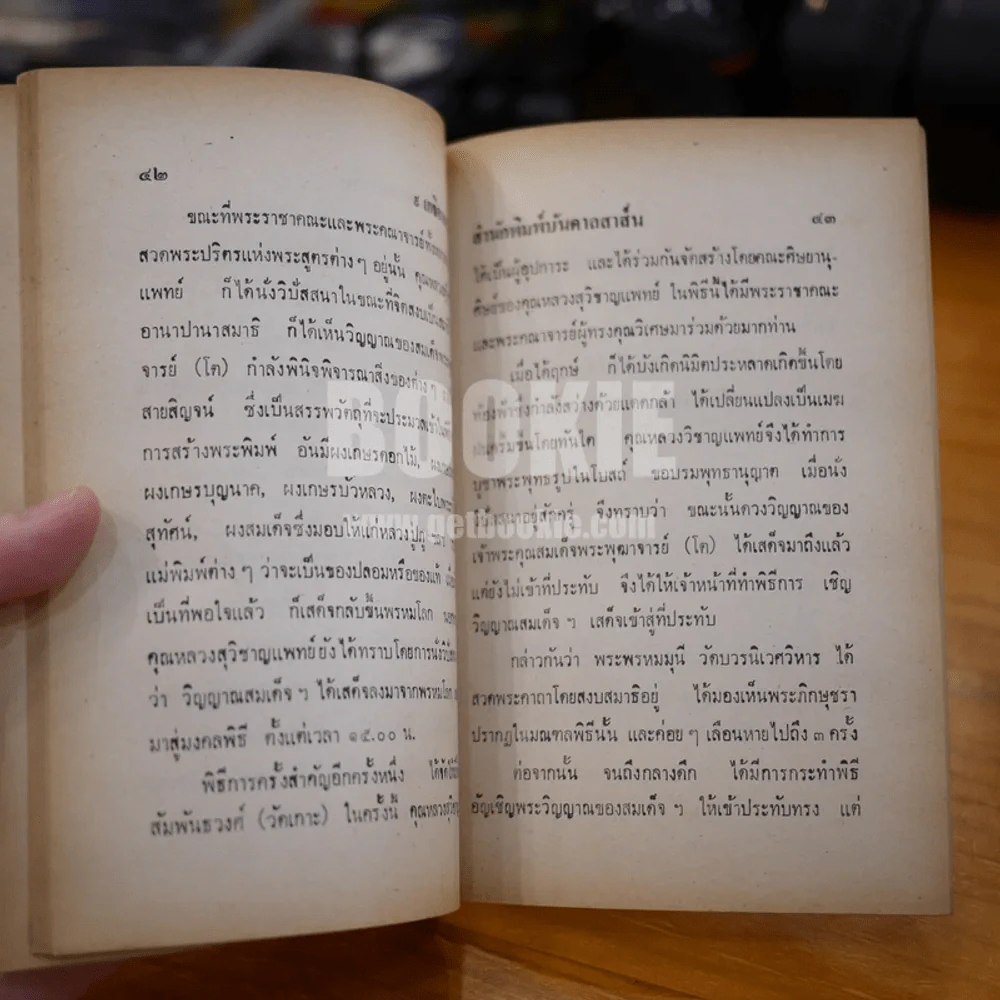 ๔๒
ขณะที่พระราชาคณะและพระคณาจารย์
สวดพระปริตรแห่งพระสูตรต่าง ๆ อยู่นั้น
แพทย์ ก็ได้นั่งวิปัสสนาในขณะที่จิตสงบ
อานาปานาสมาธิ ก็ได้เห็นวิญญาณของสมเด็จ
จารย์ (โต) กำลังพินิจพิจารณาสิ่งของต่าง ๆ
สายสิญจน์ ซึ่งเป็นสรรพวัตถุที่จะประมวลเข้า
การสร้างพระพิมพ์ อันมีผงเกษรดอกไม้,
ผงเกษรบุญนาค, ผงเกษรบัวหลวง, ผงตะไบพระ
สุทัศน์, ผงสมเด็จซึ่งมอบให้แก่หลวงปู่ภู
แม่พิมพ์ต่าง ๆ ว่าจะเป็นของปลอมหรือของแท้
เป็นที่พอใจแล้ว ก็เสด็จกลับขึ้นพรหมโลก
คุณหลวงสุวิชาญแพทย์ยังได้ทราบโดยการนั่ง
ว่า วิญญาณสมเด็จ ฯ ได้เสด็จลงมาจากพรหมโลก
มาสู่มงคลพิธี ตั้งแต่เวลา ๑๕.๐๐ น.
พิธีการครั้งสำคัญอีกครั้งหนึ่ง
สัมพันธวงศ์ (วัดเกาะ) ในครั้งนี้
สำนักพิมพ์บันดาลสาส์น ๔๓
ได้เป็นผู้อุปการะ และได้ร่วมกันจัดสร้างโดยคณะศิษยานุ-
ศิษย์ของคุณหลวงสุวิชาญแพทย์ ในพิธีนี้ได้มีพระราชาคณะ
และพระคณาจารย์ผู้ทรงคุณวิเศษมาร่วมด้วยมากท่าน
เมื่อได้ฤกษ์ ก็ได้บังเกิดนิมิตประหลาดเกิดขึ้นโดย
ท้องฟ้าซึ่งกำลังสว่างด้วยแดดกล้า ได้เปลี่ยนแปลงเป็นเมฆ
ฝนครึ้มขึ้นโดยทันใด คุณหลวงวิชาญแพทย์จึงได้ทำการ
บูชาพระพุทธรูปในโบสถ์ ขอบรมพุทธานุญาต เมื่อนั่ง
วิปัสสนาอยู่สักครู่ จึงทราบว่า ขณะนั้นดวงวิญญาณของ
เจ้าพระคุณสมเด็จพระพุฒาจารย์ (โต) ได้เสด็จมาถึงแล้ว
แต่ยังไม่เข้าที่ประทับ จึงได้ให้เจ้าหน้าที่ทำพิธีการ เชิญ
วิญญาณสมเด็จ ฯ เสด็จเข้าสู่ที่ประทับ
กล่าวกันว่า พระพรหมมุนี วัดบวรนิเวศวิหาร ได้
สวดพระคาถาโดยสงบสมาธิอยู่ ได้มองเห็นพระภิกษุชรา
ปรากฏในมณฑลพิธีนั้น และค่อย ๆ เลือนหายไปถึง ๓ ครั้ง
ต่อจากนั้น จนถึงกลางดึก ได้มีการกระทำพิธี
อัญเชิญพระวิญญาณของสมเด็จ ฯ ให้เข้าประทับทรง แต่
BOOKIE
www.getbookie.com